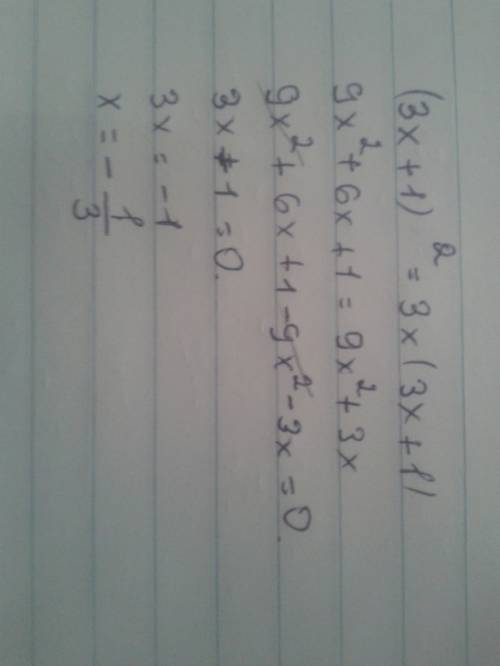 (3x+1)² = 3x(3x+1)
9x²+6x+1 = 9x²+3x
9x²+6x+1-9x²-3x=0.
3x+1=0.
3x=-1
x = -1/3